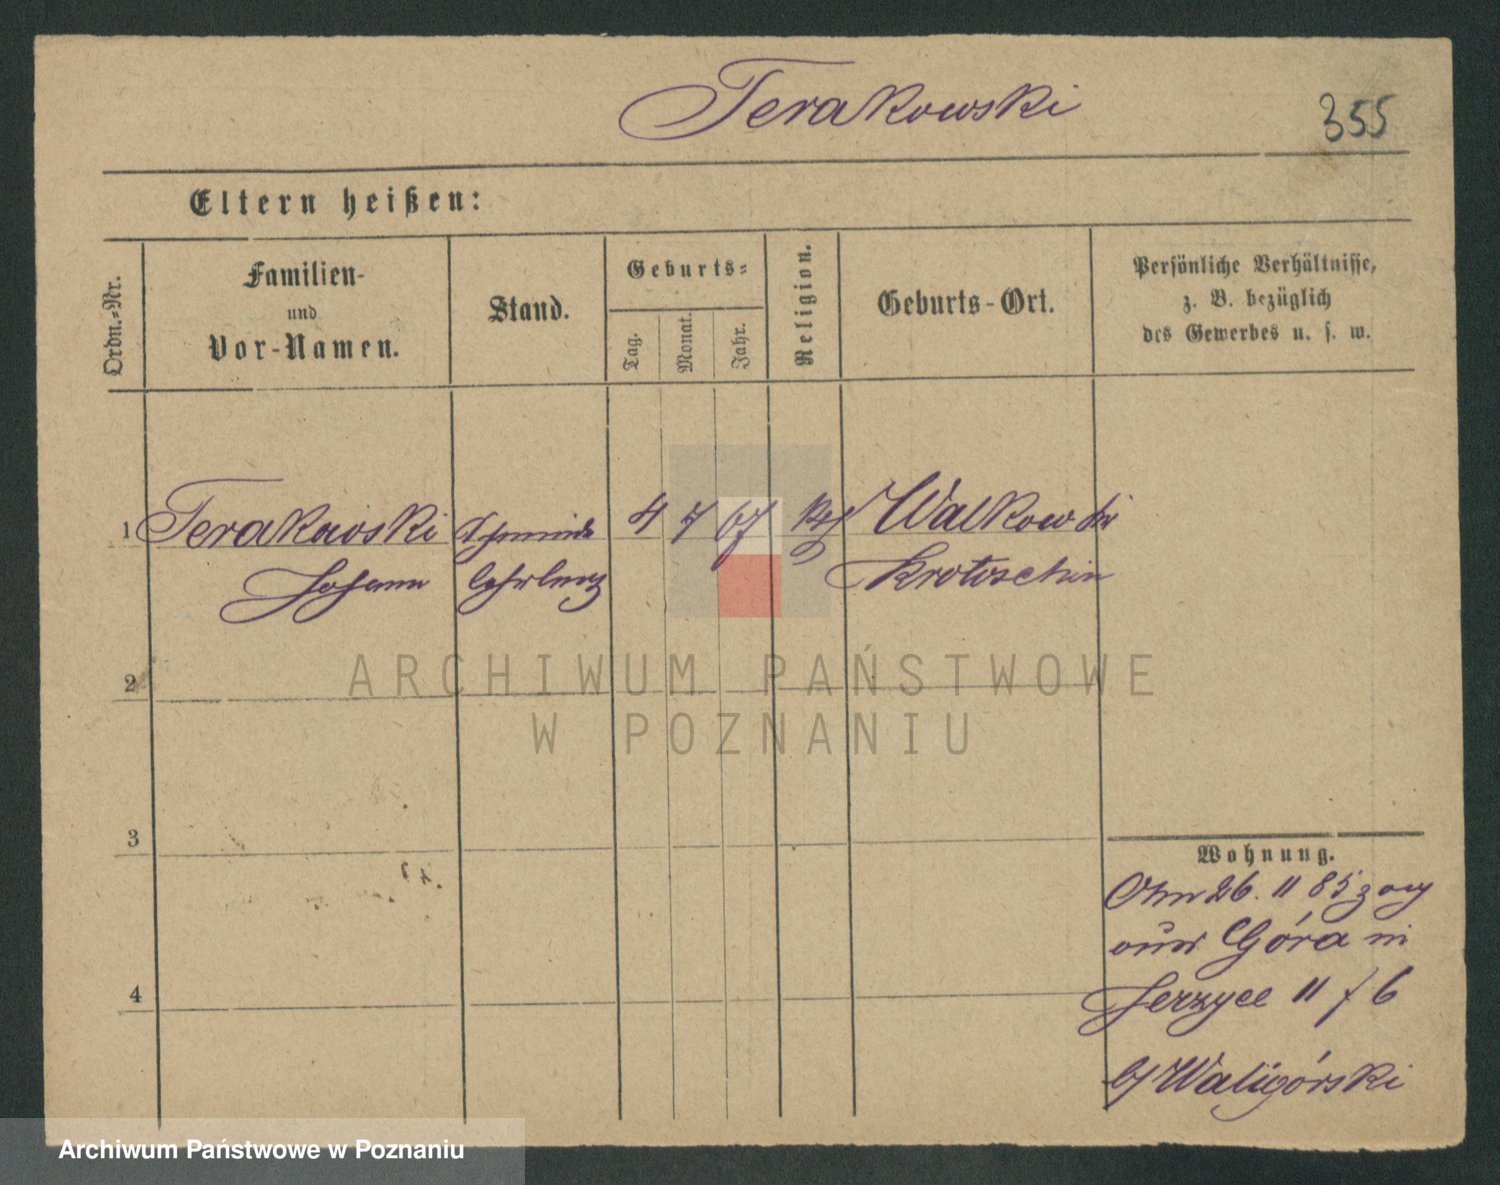 Terakowski
355
Eltern heißen:
Ordn.-Nr.
Familien-
und
Vor-Namen.
Stand.
Geburts-
Tag.
Monat.
Jahr.
Religion.
Geburts-Ort.
Persönliche Verhältnisse,
z. B. bezüglich
des Gewerbes u. s. w.
1 Terakowski Schmiede 4 7 67 Walkow
Johann lehrling Krotoschin
2
ARCHIWUM PAŃSTWOWE
W POZNANIU
3
Wohnung.
26. 11 85 zog
Góra in
4
Jerzyce 11 / 6
b/ Waligórski
Archiwum Państwowe w Poznaniu